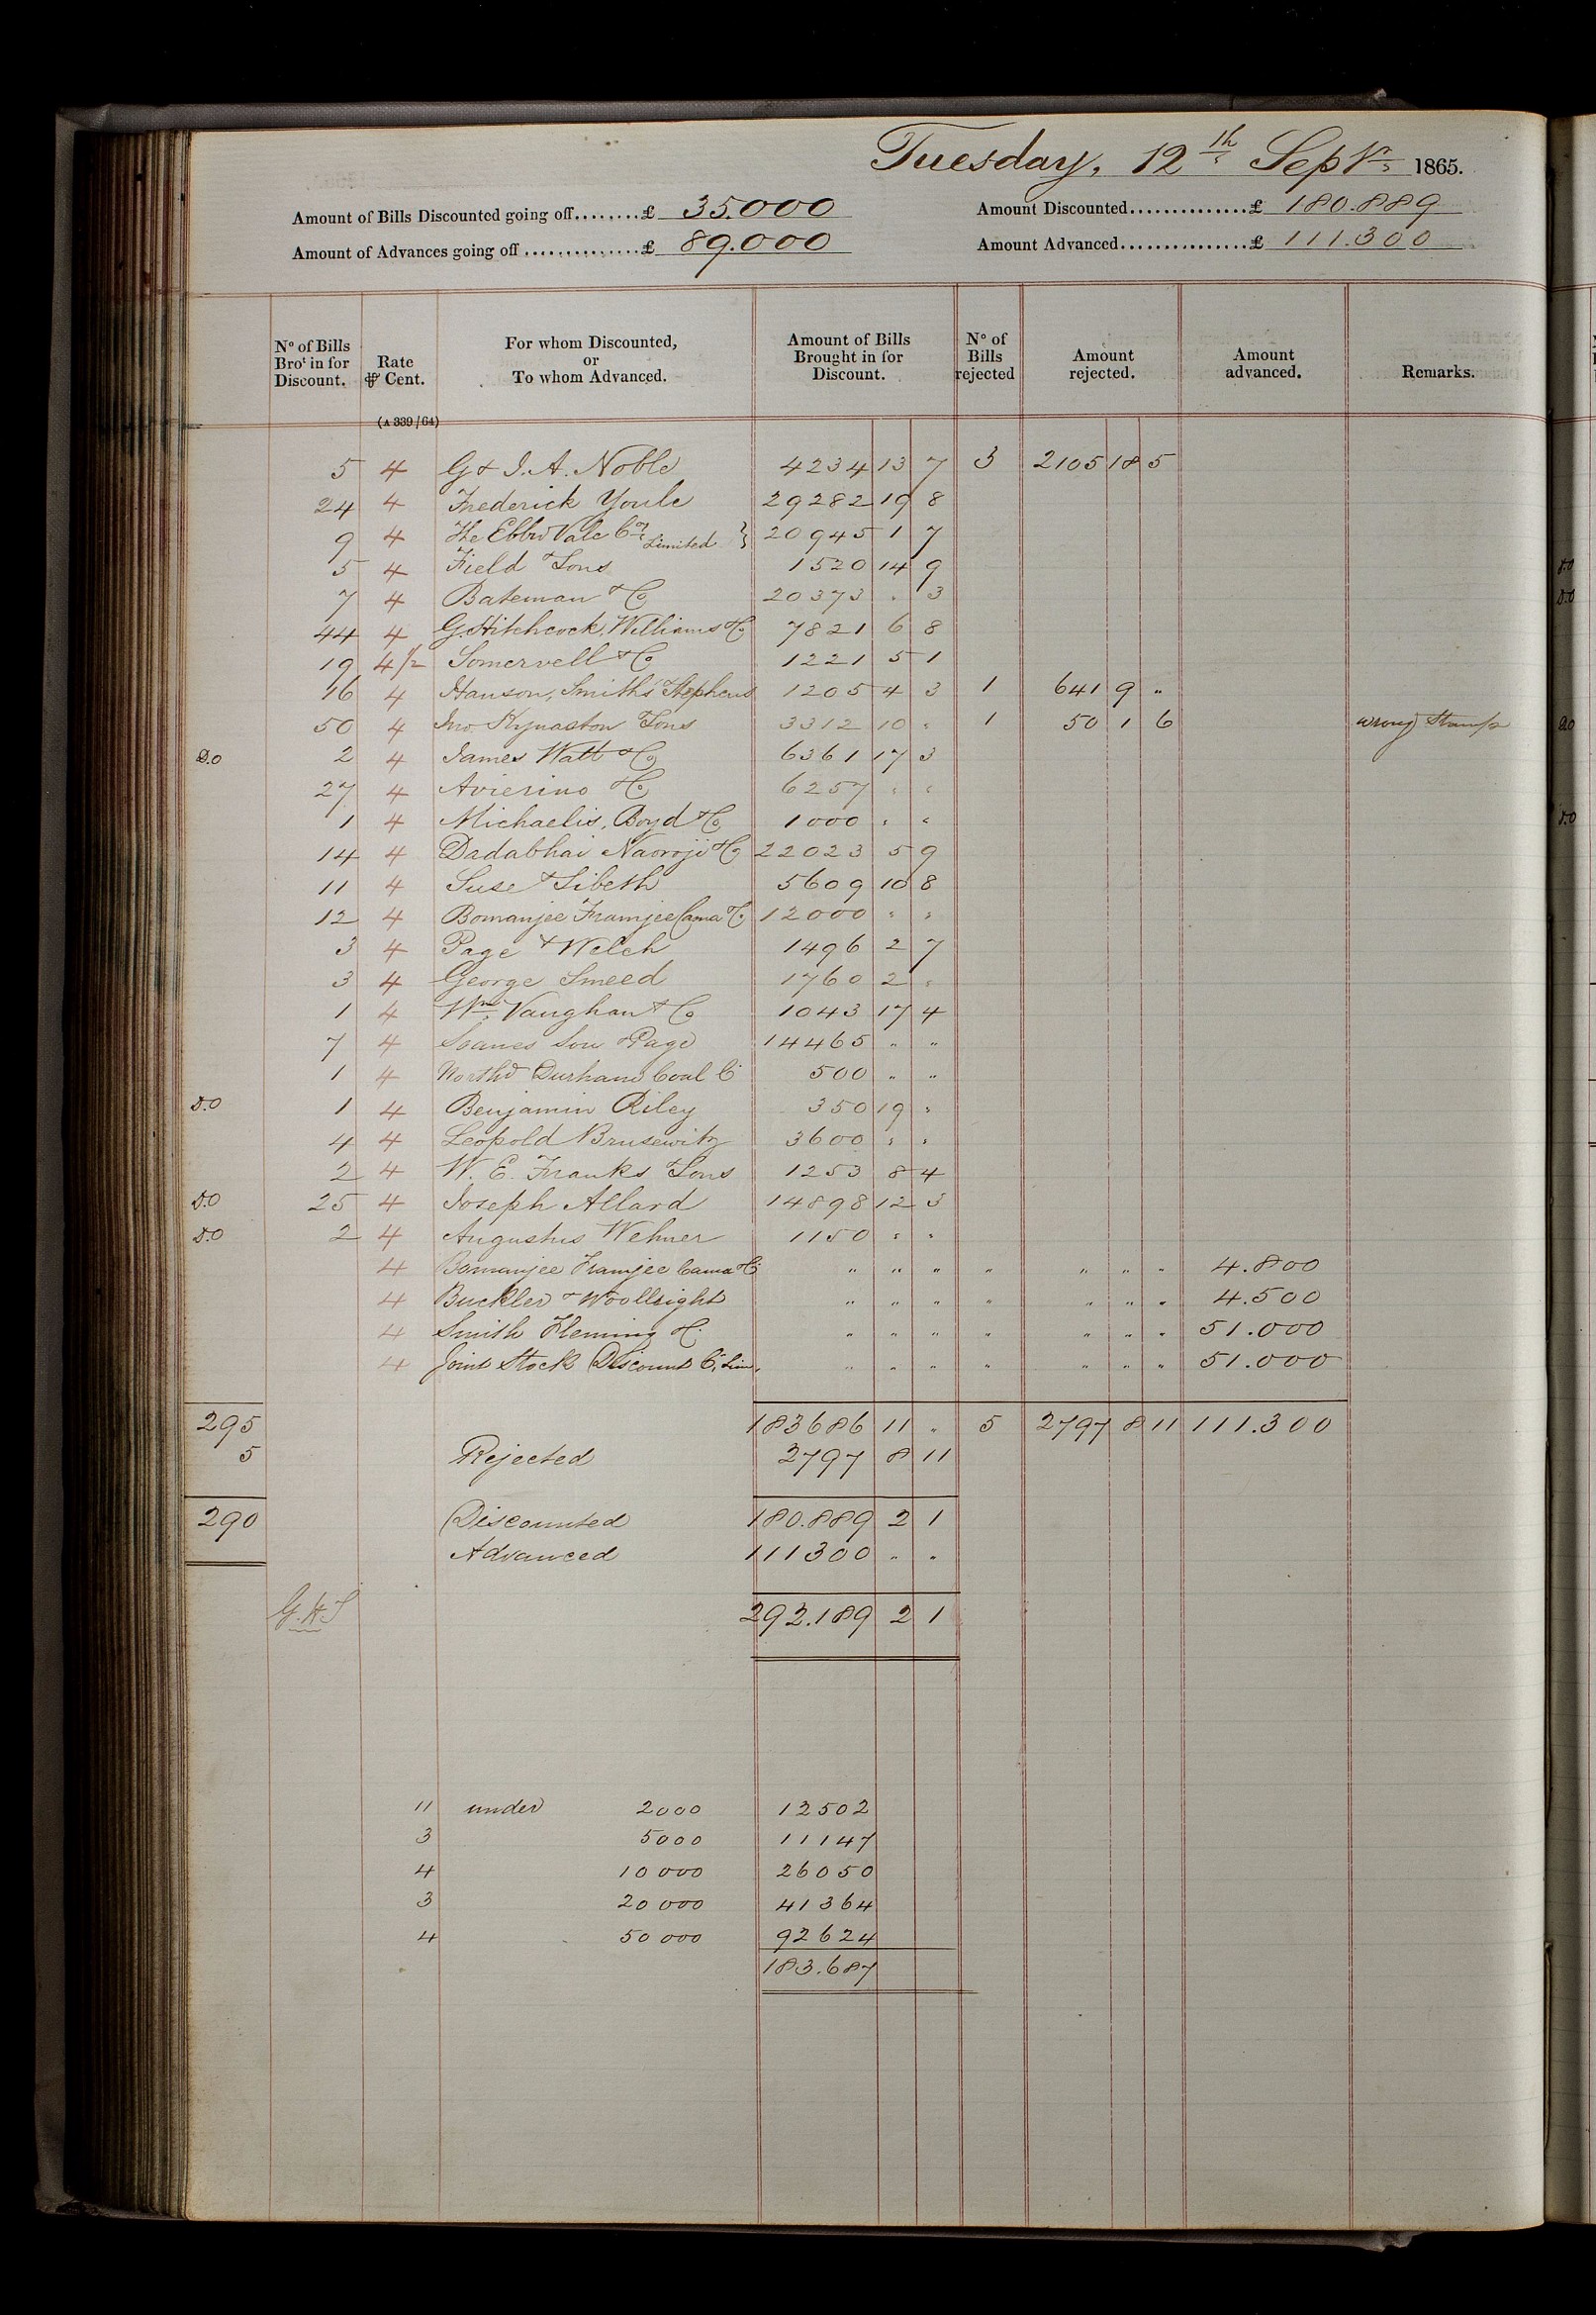 Tuesday, 12th Septr 1865.
Amount of Bills Discounted going off........£ 35.000 Amount Discounted..............£ 180.889
Amount of Advances going off..............£ 89.000 Amount Advanced...............£ 111.300
No of Bills Brot in for Discount. Rate ⅌ Cent. For whom Discounted, or To whom Advanced. Amount of Bills Brought in for Discount. No of Bills rejected Amount rejected. Amount advanced. Remarks.
(A 339/64)
5 4 G & J. A. Noble 4234 13 7 3 2105 18 5
24 4 Frederick Youle 29282 19 8
9 4 The Ebbw Vale Coy Limited } 20945 1 7
5 4 Field & Sons 1520 14 9
7 4 Bateman & Co 20373 " 3
44 4 G. Hitchcock, Williams & Co 7821 6 8
19 4½ Somervell & Co 1221 5 1
16 4 Hanson, Smiths Stephens 1205 4 3 1 641 9 "
50 4 Jno. Kynaston & Sons 3312 10 " 1 50 1 6 wrong Stamp
D.O 2 4 James Watt & Co 6361 17 3
27 4 Avierino & Co 6257 " "
1 4 Michaelis, Boyd & Co 1000 " "
14 4 Dadabhai Naoroji & Co 22023 5 9
11 4 Suse & Sibeth 5609 10 8
12 4 Bomanjee Framjee Cama & Co 12000 " "
3 4 Page & Welch 1496 2 7
3 4 George Smeed 1760 2 "
1 4 Wm Vaughan & Co 1043 17 4
7 4 Soanes Son & Page 14465 " "
1 4 Northd & Durham Coal Co 500 " "
D.O 1 4 Benjamin Riley 350 19 "
4 4 Leopold Brusewitz 3600 " "
2 4 W. E. Franks & Sons 1253 8 4
D.O 25 4 Joseph Allard 14898 12 3
D.O 2 4 Augustus Wehner 1150 " "
4 Bomanjee Framjee Cama & Co " " " " " " " 4.800
4 Buckler & Woollright " " " " " " " 4.500
4 Smith Fleming & Co " " " " " " " 51.000
4 Joint Stock Discount Co, Lim. " " " " " " " 51.000
295 183686 11 " 5 2797 8 11 111.300
5 Rejected 2797 8 11
290 Discounted 180.889 2 1
Advanced 111300 " "
G.H.S 292.189 2 1
11 under 2000 12502
3 5000 11147
4 10 000 26050
3 20 000 41364
4 50 000 92624
183.687